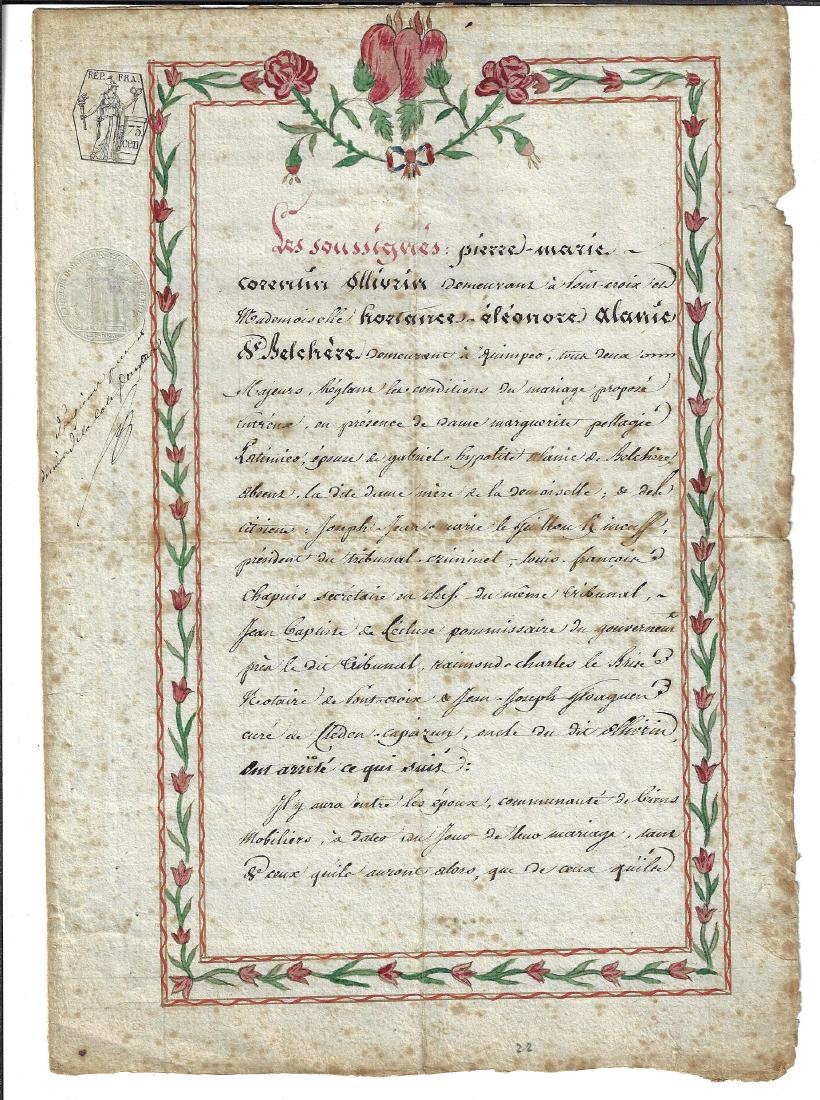 REP. FRA.
75
CEN
Les soussignés : pierre-marie -
corentin Ollivrin demeurant à Pont-croix et
Mademoiselle hortance-éléonore alanic
de Belchère demeurant à Quimper, tous deux
Majeurs, Réglant les conditions du mariage proposé
entr'eux, en présence de dame marguerite pellagié
épouse de gabriel-hypolite alanic de Belchère,
absent, la dite dame mère de la demoiselle ; & des
citoiens : Joseph-Jean-marie le
président du tribunal-criminel, louis-françois
Chapuis secrétaire en chef du même tribunal, -
Jean Baptiste de Lécluse commissaire du gouvernemt
près le dit tribunal, raimond-charles le Brise
Notaire de Pont-croix & Jean-Joseph
curé de Cléden-capsizun, oncle du dit Ollivrin,
ont arrêté ce qui suit :
Il y aura entre les époux, communauté de biens
Mobiliers, à dater du Jour de leur mariage, tant
de ceux qu'ils auront alors, que de ceux qu'ils
22